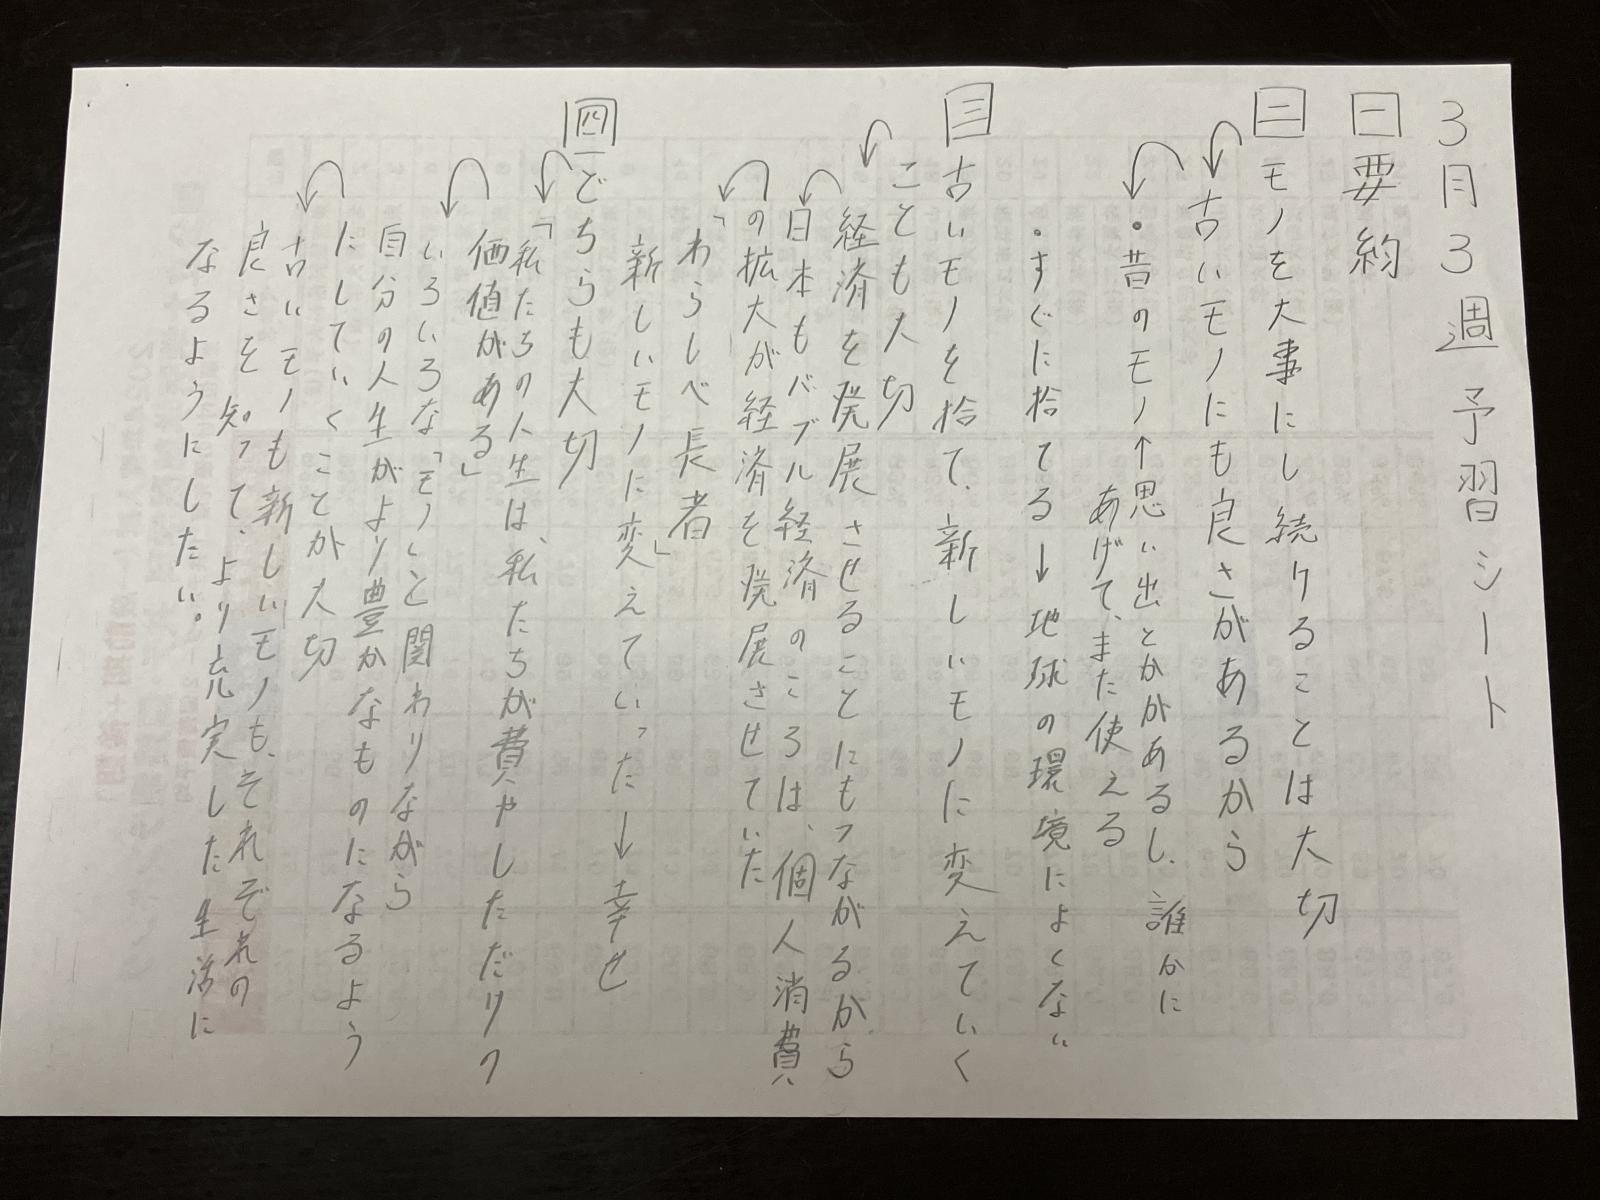 3月3週 予習シート
一 要約
二 モノを大事にし続けることは大切
古いモノにも良さがあるから
・昔のモノ↑思い出とかがあるし、誰かに
あげて、また使える
・すぐに拾てる→地球の環境によくない
三 古いモノを拾て、新しいモノに変えていく
ことも大切
経済を発展させることにもつながるから
日本もバブル経済のころは、個人消費
の拡大が経済を発展させていた
「わらしべ長者」
新しいモノに変えていった→幸せ
四 どちらも大切
「私たちの人生は、私たちが費やしただけの
価値がある」
いろいろな「モノ」と関わりながら
自分の人生がより豊かなものになるよう
にしていくことが大切
古いモノも新しいモノも、それぞれの
良さを知って、より充実した生活に
なるようにしたい。